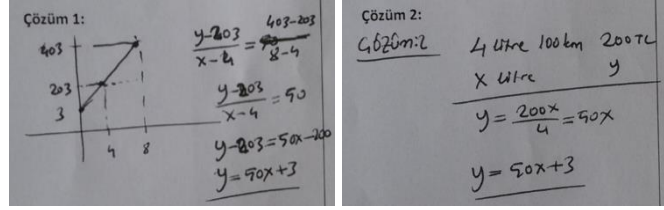 Çözüm 1:
403
203
3
4 8
y-203 / x-4 = 403-203 / 8-4
y-203 / x-4 = 50
y-203=50x-200
y=50x+3
Çözüm 2:
Çözüm:2
4 litre 100km 200TL
x litre y
y = 200x / 4 = 50x
y = 50x+3